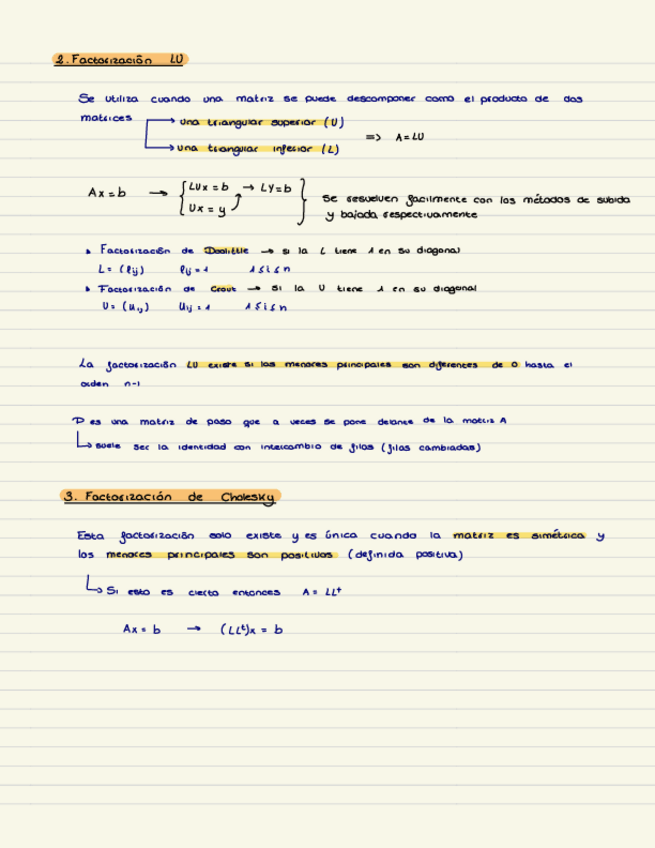 2. Factorización LU
Se utiliza cuando una matriz se puede descomponer como el producto de dos
matrices → una triangular superior (U)
→ una triangular inferior (L) => A=LU
Ax=b → { LUx=b → Ly=b
Ux=y } se resuelven facilmente con los métodos de subida
y bajada respectivamente
Factorización de Doolittle → si la L tiene 1 en su diagonal
L=(lij) lij=1 1≤i≤n
Factorización de Crout → si la U tiene 1 en su diagonal
U=(uij) Uij=1 1≤i≤n
La factorización LU existe si los menores principales son diferentes de 0 hasta el
orden n-1
P es una matriz de paso que a veces se pone delante de la matriz A
↳ suele ser la identidad con intercambio de filas (filas cambiadas)
3. Factorización de Cholesky
Esta factorización solo existe y es única cuando la matriz es simétrica y
los menores principales son positivos (definida positiva)
↳ Si esto es cierto entonces A=LLᵗ
Ax=b → (LLᵗ)x=b